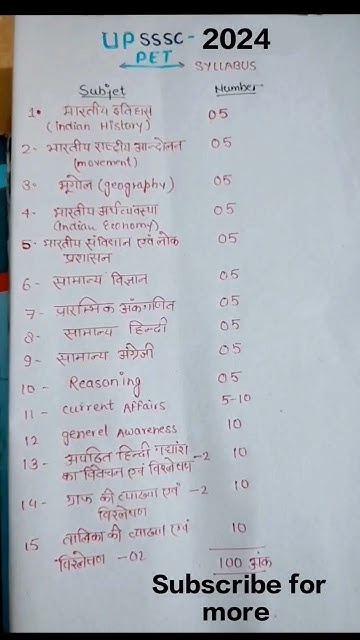 UPSSSC - 2024
PET
SYLLABUS
Subjet Number
1. भारतीय इतिहास 05
(indian History)
2- भारतीय राष्ट्रीय आन्दोलन 05
(movement)
3- भूगोल (geography) 05
4- भारतीय अर्थव्यवस्था 05
(Indian Economy)
5- भारतीय संविधान एवं लोक 05
प्रशासन
6- सामान्य विज्ञान 05
7- प्रारम्भिक अंकगणित 05
8- सामान्य हिन्दी 05
9- सामान्य अंग्रेजी 05
10- Reasoning 05
11- current Affairs 5-10
12 generel Awareness 10
13- अपठित हिन्दी गद्यांश 10
का विवेचन एवं विश्लेषण -2
14- ग्राफ की व्याख्या एवं -2 10
विश्लेषण
15 तालिका की व्याख्या एवं 10
विश्लेषण -02 100 अंक
Subscribe for
more